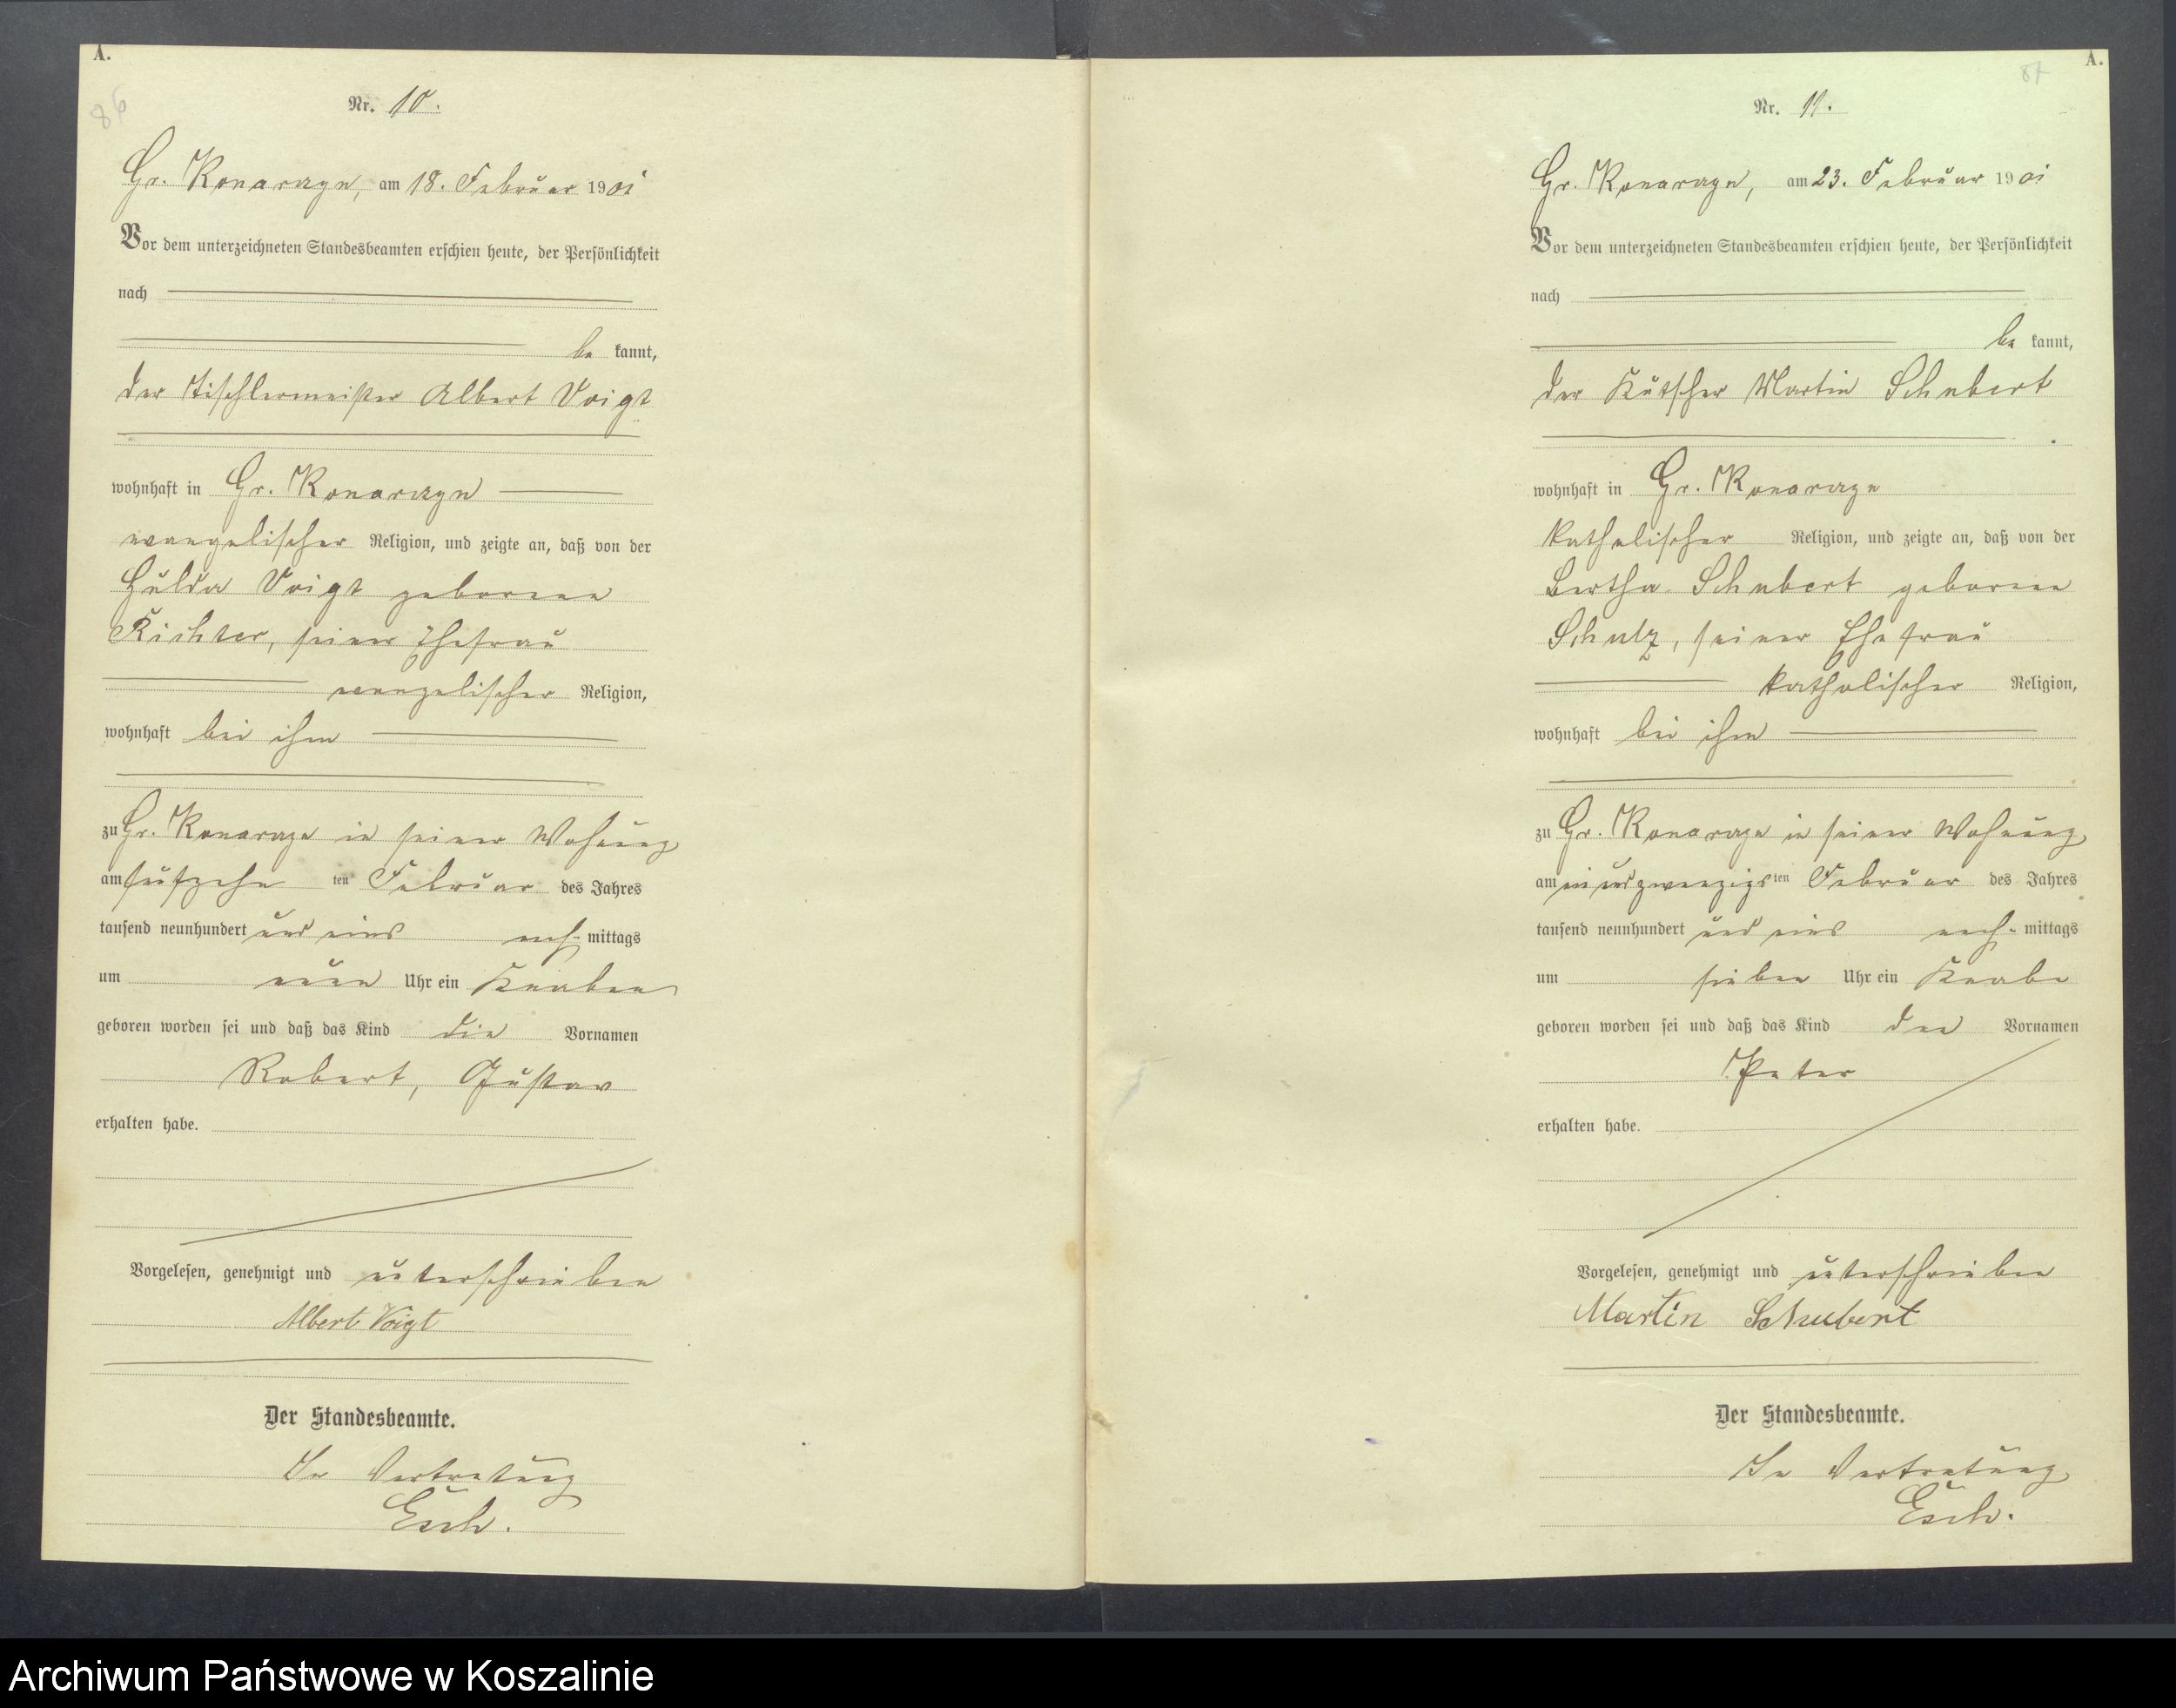 A.
86
Nr. 10.
Gr. Konarczyn, am 18. Februar 1901
Vor dem unterzeichneten Standesbeamten erschien heute, der Persönlichkeit
nach
be kannt,
der Tischlermeister Albert Voigt
wohnhaft in Gr. Konarczyn
evangelischer Religion, und zeigte an, daß von der
Hulda Voigt geborenen
Richter, seiner Ehefrau
evangelischer Religion,
wohnhaft bei ihm
zu Gr. Konarczyn in seiner Wohnung
am fünfzehn ten Februar des Jahres
tausend neunhundert und eins nach- mittags
um neun Uhr ein Knaben
geboren worden sei und daß das Kind die Vornamen
Robert, Gustav
erhalten habe.
Vorgelesen, genehmigt und unterschrieben
Albert Voigt
Der Standesbeamte.
In Vertretung
Esch.
A.
87
Nr. 11.
Gr. Konarczyn, am 23. Februar 1901
Vor dem unterzeichneten Standesbeamten erschien heute, der Persönlichkeit
nach
be kannt,
der Kutscher Martin Schubert
wohnhaft in Gr. Konarczyn
katholischer Religion, und zeigte an, daß von der
Bertha Schubert geborene
Schulz, seiner Ehefrau
katholischer Religion,
wohnhaft bei ihm
zu Gr. Konarczyn in seiner Wohnung
am ten Februar des Jahres
tausend neunhundert und eins nach- mittags
um sieben Uhr ein Knabe
geboren worden sei und daß das Kind den Vornamen
Peter
erhalten habe.
Vorgelesen, genehmigt und unterschrieben
Martin Schubert
Der Standesbeamte.
In Vertretung
Esch.
Archiwum Państwowe w Koszalinie